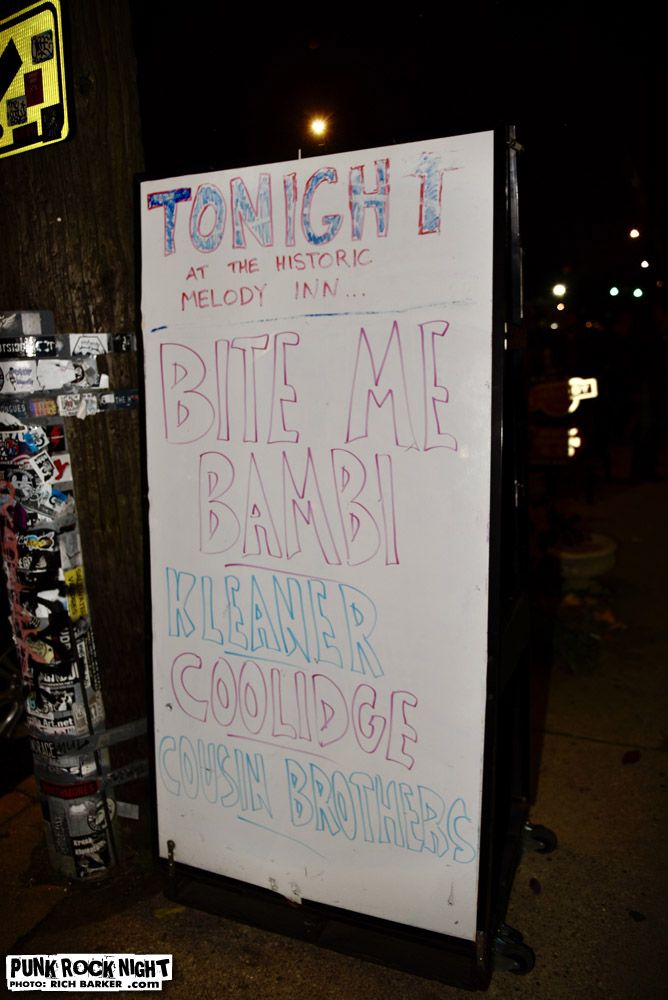 TONIGHT
AT THE HISTORIC
MELODY INN...
BITE ME
BAMBI
KLEANER
COOLIDGE
COUSIN BROTHERS
PUNK ROCK NIGHT
PHOTO: RICH BARKER .com